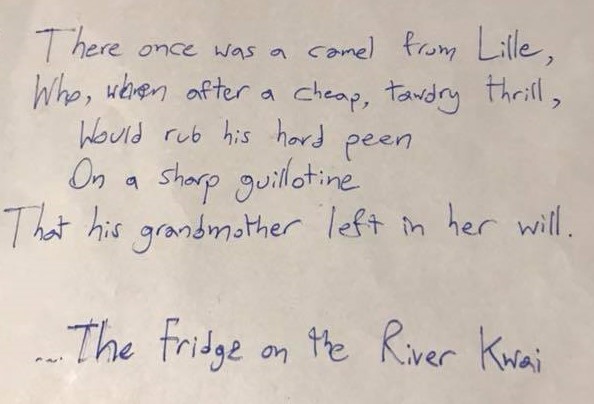 There once was a camel from Lille,
Who, when after a cheap, tawdry thrill,
Would rub his hard peen
On a sharp guillotine
That his grandmother left in her will.
...The Fridge on the River Kwai